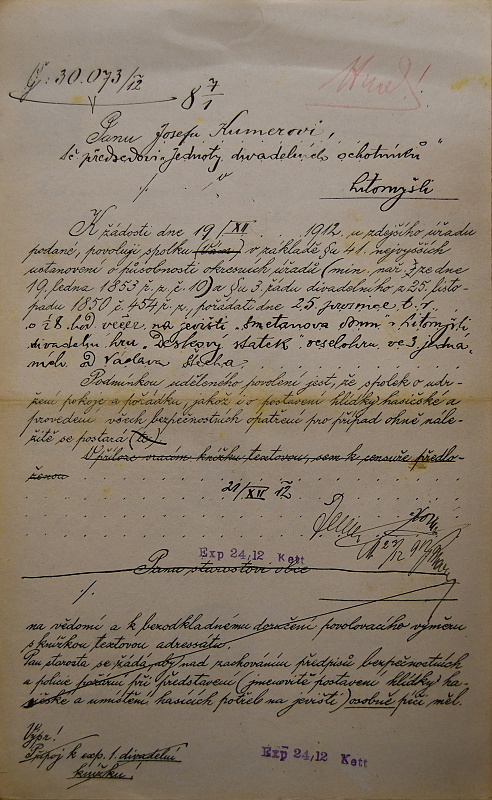 Čj: 30.073/12
8 7/1
Ihned!
Panu Josefu Kumerovi,
t. č. předsedovi „Jednoty divadelních ochotníků"
v
Litomyšli
K žádosti dne 19/XII 1912 u zdejšího úřadu
podané, povoluji spolku v základě §u 41. nejvyšších
ustanovení o působnosti okresních úřadů (min. nař. ze dne
19. ledna 1853 ř. z. č. 10) a §u 3. řádu divadelního z 25. listo-
padu 1850 č. 454 ř. z., pořádati dne 25. prosince t. r.
o ½8. hod. večer na jevišti „Smetanova domu" v Litomyšli
divadelní hru „Deskový statek" veselohru ve 3 jedná-
ních. Dr Václava Štecha.
Podmínkou uděleného povolení jest, že spolek o udr-
žení pokoje a pořádku, jakož i o postavení hlídky hasičské a
provedení všech bezpečnostních opatření pro případ ohně nále-
žitě se postará
V příloze vracím knížku textovou, sem k censuře předlo-
ženou
21/XII 12
Exp 24,12 Kett
Panu starostovi obce
na vědomí a k bezodkladnému doručení povolovacího výměru
s knížkou textovou adressátu.
Pan starosta se žádá, aby nad zachováním předpisů bezpečnostních
a policie požární při představení (jmenovitě postavení hlídky ha-
sičské a umístění hasicích potřeb na jevišti) osobně péči měl.
Výpr!
Připoj k exp. 1. divadelní
knížku.
Exp 24,12 Kett